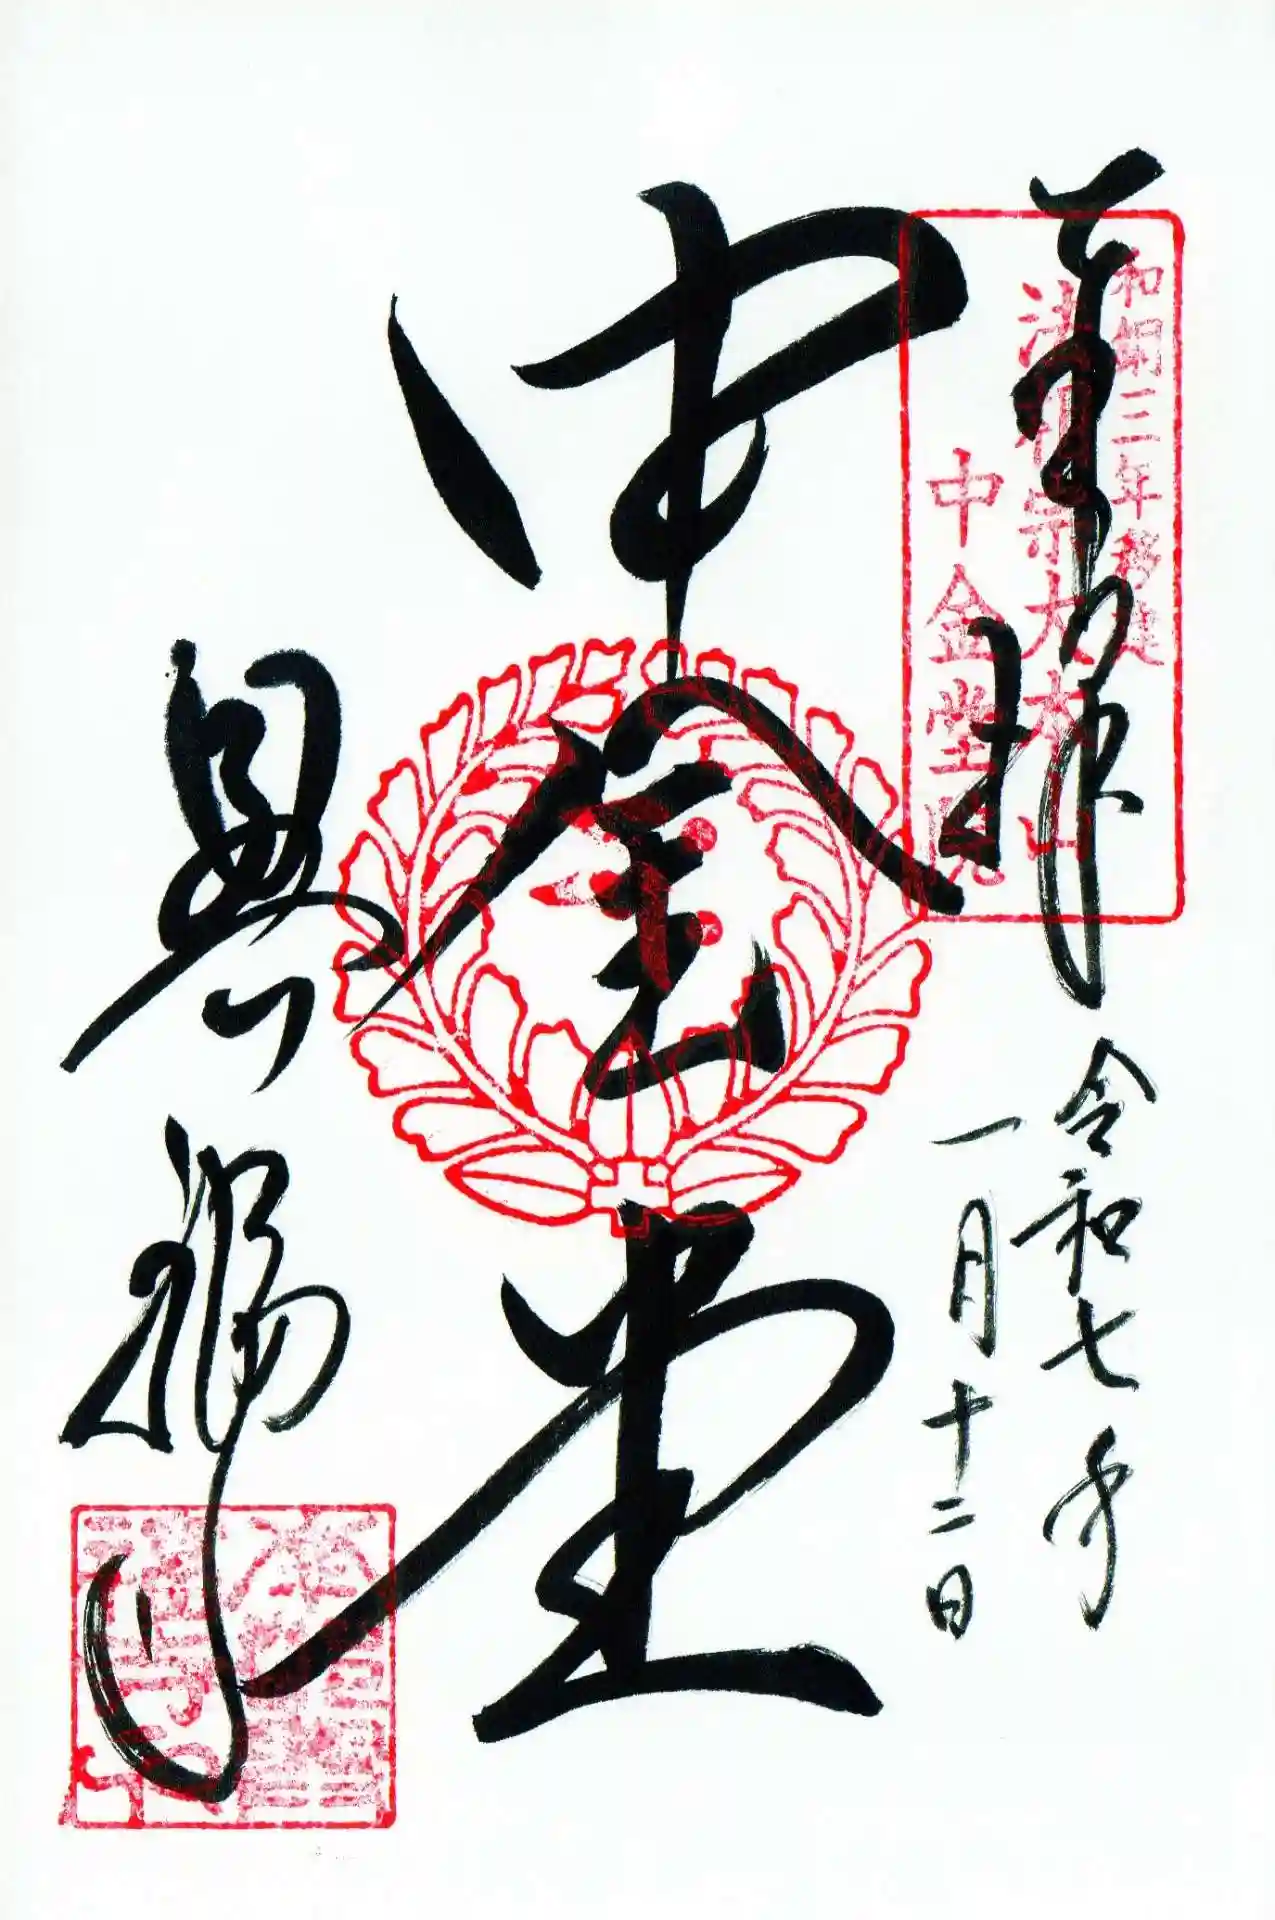 奉拝
令和七年
一月十二日
和銅三年移建
法相宗大本山
中金堂院
中金堂
興福寺